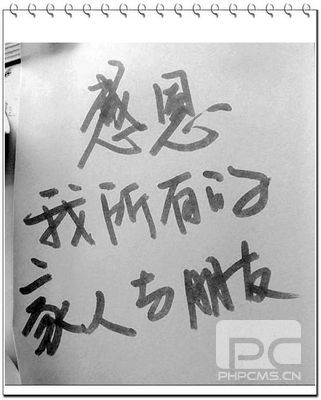 感恩
我所有的
家人与朋友
PC
PHPCMS.CN